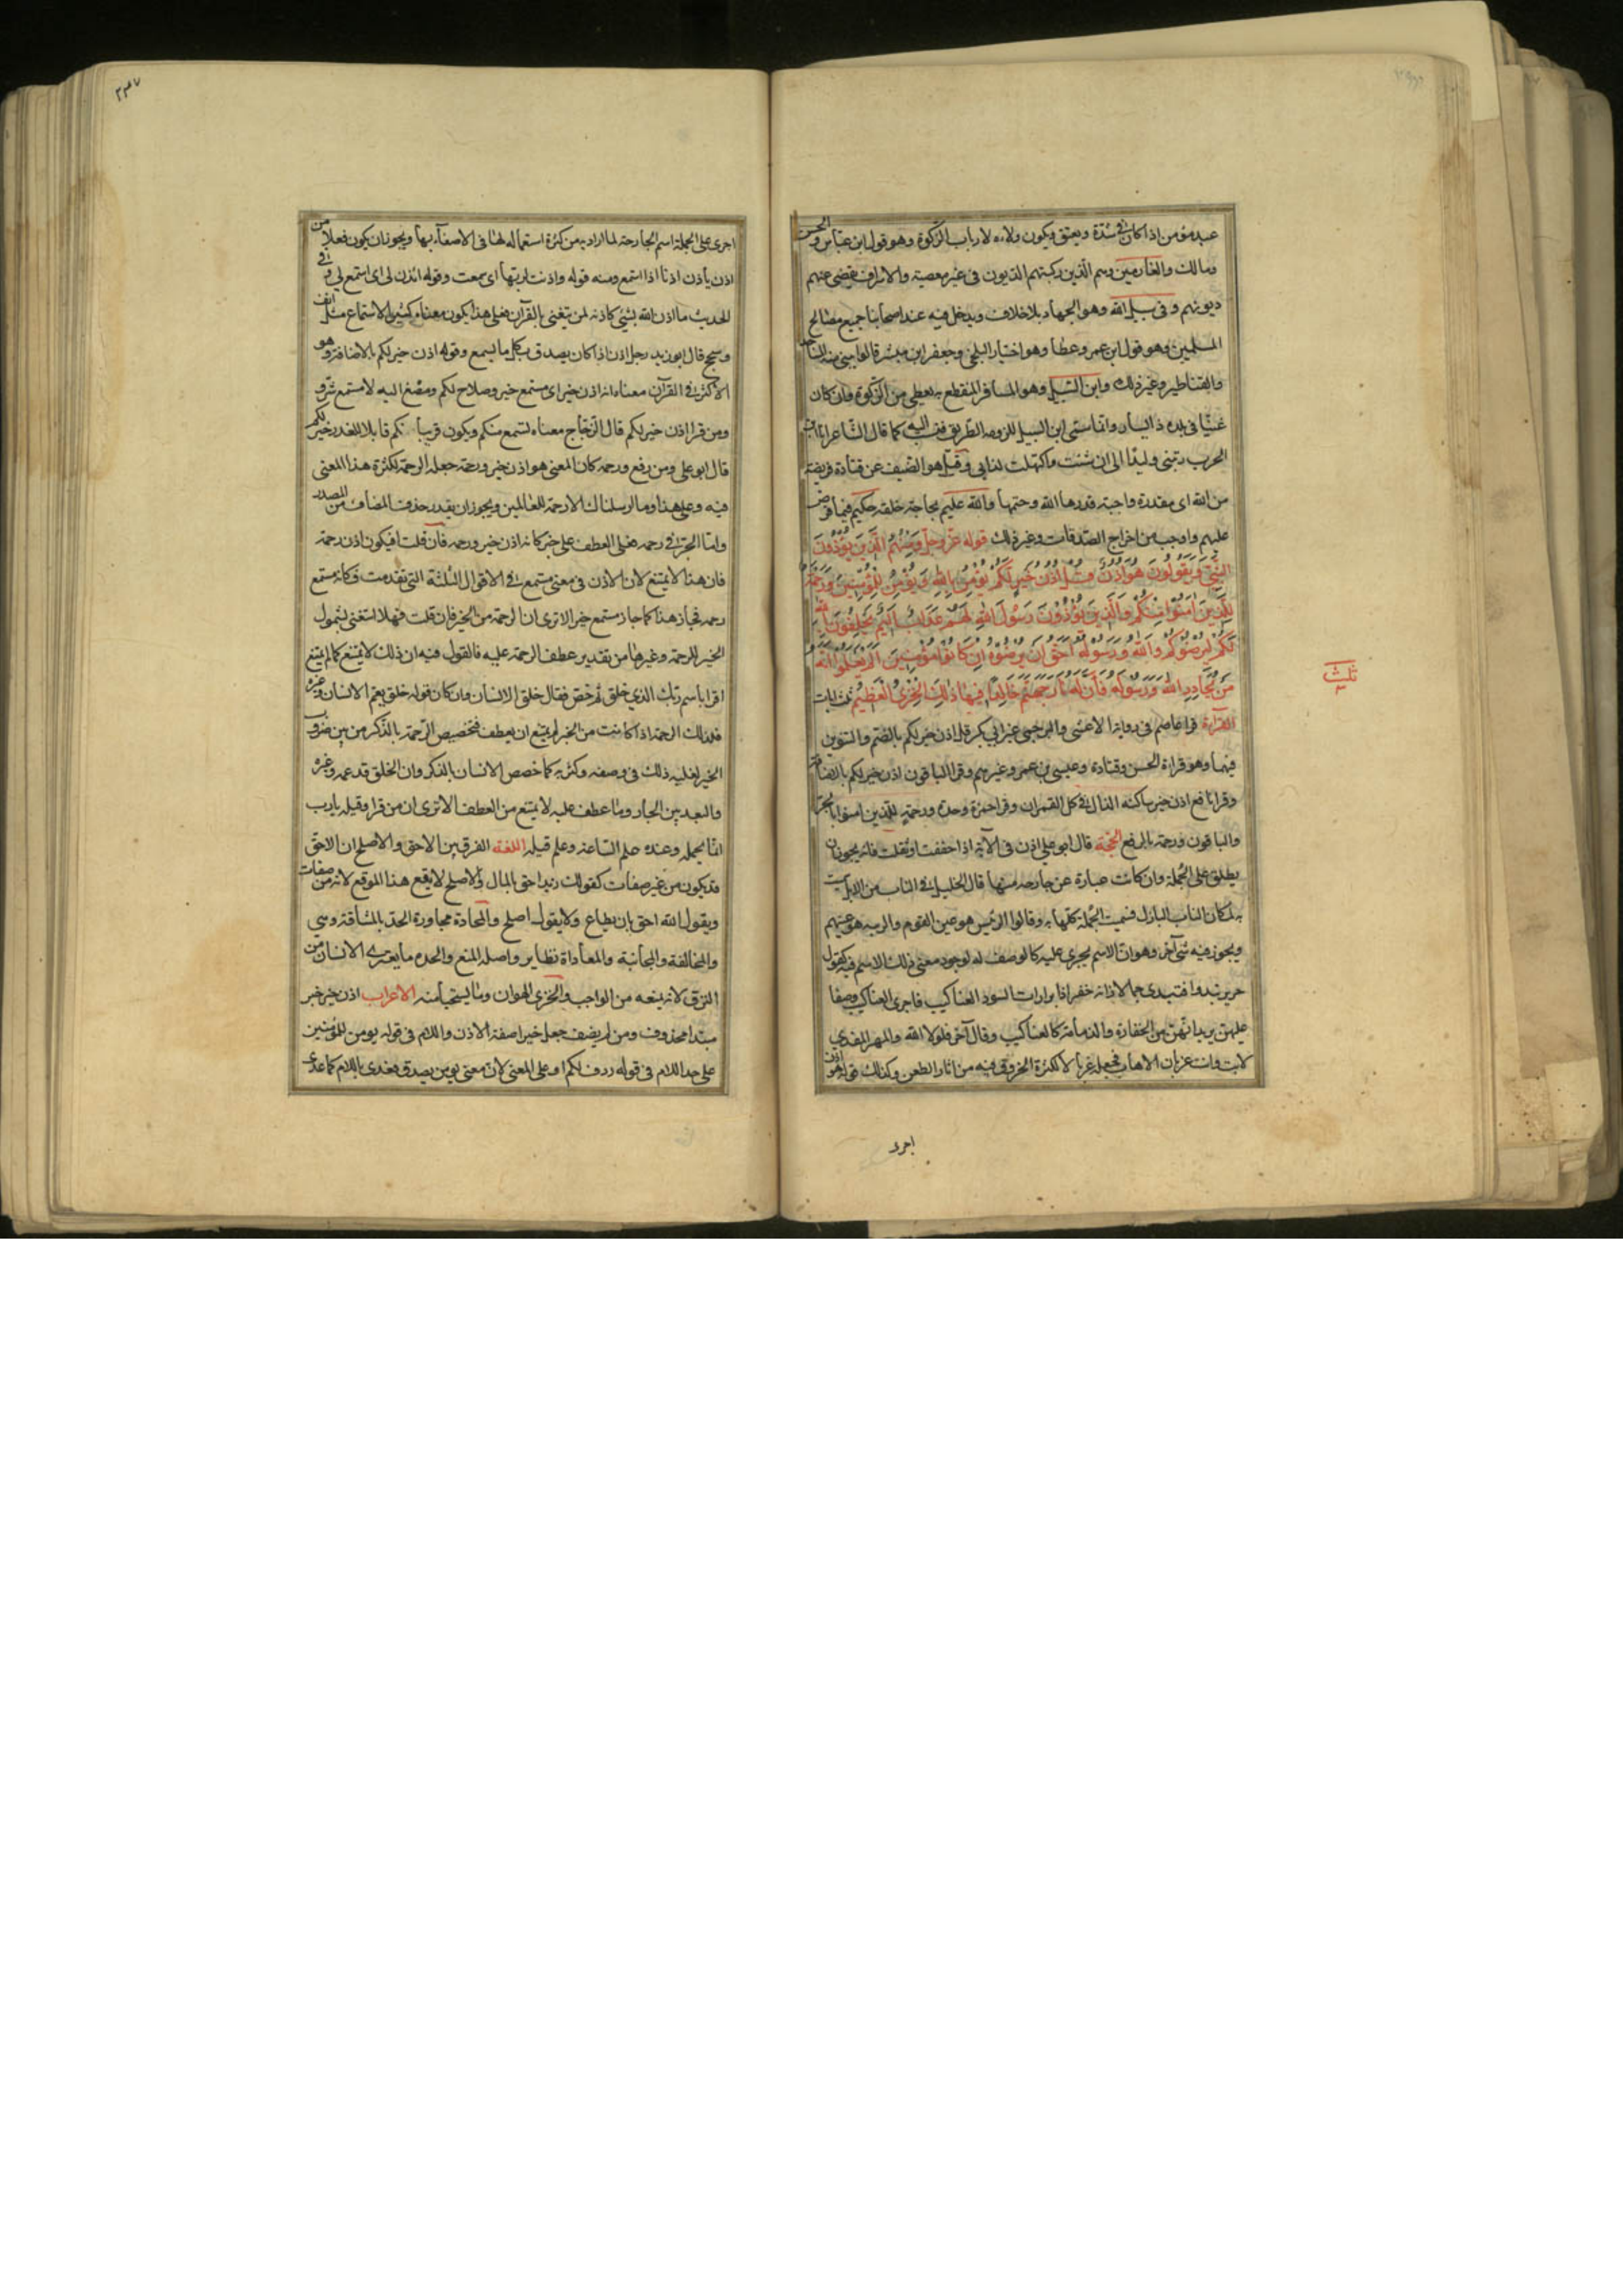 عبد مؤمن اذا كان فى شدة ويعتق ويكون ولاءه لارباب الزكوة وهو قول ابن عباس والحسن
ومالك والغارمين وهم الذين ركبتهم الديون فى غير معصية والاسراف يقضى عنهم
ديونهم وفى سبيل الله وهو الجهاد بلا خلاف ويدخل فيه عند اصحابنا جميع مصالح
المسلمين وهو قول ابن عمر وعطا وهو اختيار البلخى وجعفر ابن مبشر قالوا يبنى منه المساجد
والقناطير وغير ذلك وابن السبيل وهو المسافر المنقطع به يعطى من الزكوة وان كان
غنيا فى بلده ذا اليسار وانما سمى ابن السبيل للزومه الطريق فنسب اليه كما قال الشاعر انا ابن
الحرب ربتنى وليدا الى ان شبت واكتهلت لداتى وقيل هو الضيف عن قتادة فريضة
من الله اى مقدرة واجبة قدرها الله وحتمها والله عليم بحاجة خلقه حكيم فيما فرض
عليهم واوجب من اخراج الصدقات وغير ذلك قوله عز وجل وَمِنْهُمُ الَّذِينَ يُؤْذُونَ
النَّبِيَّ وَيَقُولُونَ هُوَ اُذُنٌ قُلْ اُذُنُ خَيْرٍ لَكُمْ يُؤْمِنُ بِاللهِ وَيُؤْمِنُ لِلْمُؤْمِنِينَ وَرَحْمَةٌ
لِلَّذِينَ اٰمَنُوا مِنْكُمْ وَالَّذِينَ يُؤْذُونَ رَسُولَ اللهِ لَهُمْ عَذَابٌ اَلِيمٌ يَحْلِفُونَ بِاللهِ
لَكُمْ لِيُرْضُوكُمْ وَاللهُ وَرَسُولُهُ اَحَقُّ اَنْ يُرْضُوهُ اِنْ كَانُوا مُؤْمِنِينَ اَلَمْ يَعْلَمُوا اَنَّهُ
مَنْ يُحَادِدِ اللهَ وَرَسُولَهُ فَاَنَّ لَهُ نَارَ جَهَنَّمَ خَالِدًا فِيهَا ذٰلِكَ الْخِزْىُ الْعَظِيمُ ثلث ايات
القراءة قرا عاصم فى رواية الاعشى والبرجمى عن ابى بكر قل اذن خير لكم بالضم والتنوين
فيهما وهو قراءة الحسن وقتادة وعيسى بن عمر وغيرهم وقرا الباقون اذن خير لكم بالاضافة
وقرا نافع اذن خير ساكنه الذال فى كل القران وقرا حمزة وحده ورحمة للذين امنوا بالجر
والباقون ورحمة بالرفع الحجة قال ابو على اذن فى الآية اذا خففت او ثقلت فانه يجوز ان
يطلق على الجملة وان كانت عبارة عن جارحه منها قال الخليل فى الناب من الابل سميت
به لمكان الناب البازل فسميت الجملة كلها به وقالوا الرئيس هو عين القوم والربيه هو عينهم
ويجوز فيه شى آخر وهو ان الاسم يجرى عليه كالوصف له لوجود معنى ذلك الاسم فيه كقول
جرير تبدوا فتبدى جمالا زانه خفر اذا برارات السود العناكيب فاجرى العناكيب وصفا
عليهن يريد انهن من الحقارة والدمامة كالعناكيب وقال آخر فلولا الله والمهر المفدى
لابت وانت غربال الاهاب فجعله غربالا لكثرة الخروق فيه من اثار الطعن وكذلك قوله هو اذن
اجرى
ثلث
٢٣٧
اجرى على الجملة اسم الجارحة لما اراد به من كثرة استعماله لها فى الاصغاء بها ويجوز ان يكون فعلا من
اذن ياذن اذنا اذا استمع ومنه قوله واذنت لربها اى سمعت وقوله ائذن لى اى استمع لى وفى
الحديث ما اذن الله بشئ كاذنه لمن يتغنى بالقرآن فعلى هذا يكون معناه كثير الاستماع مثل انف
وسجح قال ابو زيد رجل اذن اذا كان يصدق بكل ما يسمع وقوله اذن خير لكم بالاضافة وهو
الاكثر فى القرآن معناه انه اذن خير اى مستمع خير وصلاح لكم ومصغ اليه لا مستمع شر و
ومن قرا اذن خير لكم قال الزجاج معناه يستمع منكم ويكون قريبا منكم قابلا للعذر خير لكم
قال ابو على ومن رفع ورحمه كان المعنى هو اذن خير ورحمة جعله الرحمة لكثرة هذا المعنى
فيه وعلى هذا وما ارسلناك الا رحمة للعالمين ويجوز ان يقدر حذف المضاف من المصدر
واما الجر فى رحمه فعلى العطف على خير كانه اذن خير ورحمه فان قلت افيكون اذن رحمة
فان هذا لا يمتنع لان الاذن فى معنى مستمع فى الاقوال الثلثة التى تقدمت فكانه مستمع
رحمه فجاز هذا كما جاز مستمع خير الا ترى ان الرحمة من الخير فان قلت فهلا استغنى بشمول
الخير للرحمة وغيرها من تقدير عطف الرحمة عليه فالقول فيه ان ذلك لا يمتنع كما لم يمتنع
اقرا باسم ربك الذى خلق ثم خص فقال خلق الانسان وان كان قوله خلق يعم الانسان وغيره
فكذلك الرحمة اذا كانت من الخير لم يمتنع ان يعطف فتخصيص الرحمة بالذكر من بين ضروب
الخير لغلبه ذلك فى وصفه وكثرته كما خصص الانسان بالذكر وان الخلق قد عمه وغيره
والبعد بين الجار وما عطف عليه لا يمتنع من العطف الا ترى ان من قرا وقيله يارب
انما يحمله وعنده علم الساعة وعلم قيله اللغة الفرق بين الاحق والاصلح ان الاحق
قد يكون من غير صفات كقولك زيد احق بالمال والاصلح لا يقع هذا الموقع لانه من صفات
ويقول الله احق بان يطاع ولا يقول اصلح والمحادة مجاورة الحد بالمشاقة وهى
والمخالفة والمجانبة والمعاداة نظاير واصله المنع والحده ما يعترى الانسان من
النزق لانه يمنعه من الواجب والخزى الهوان وما يستحيا منه الاعراب اذن خير خبر
مبتدا محذوف ومن لم يضف جعل خير اصفة الاذن واللام فى قوله يومن للمؤمنين
على حد اللام فى قوله ردف لكم او على المعنى لان معنى يومن يصدق فعدى باللام كما عدى